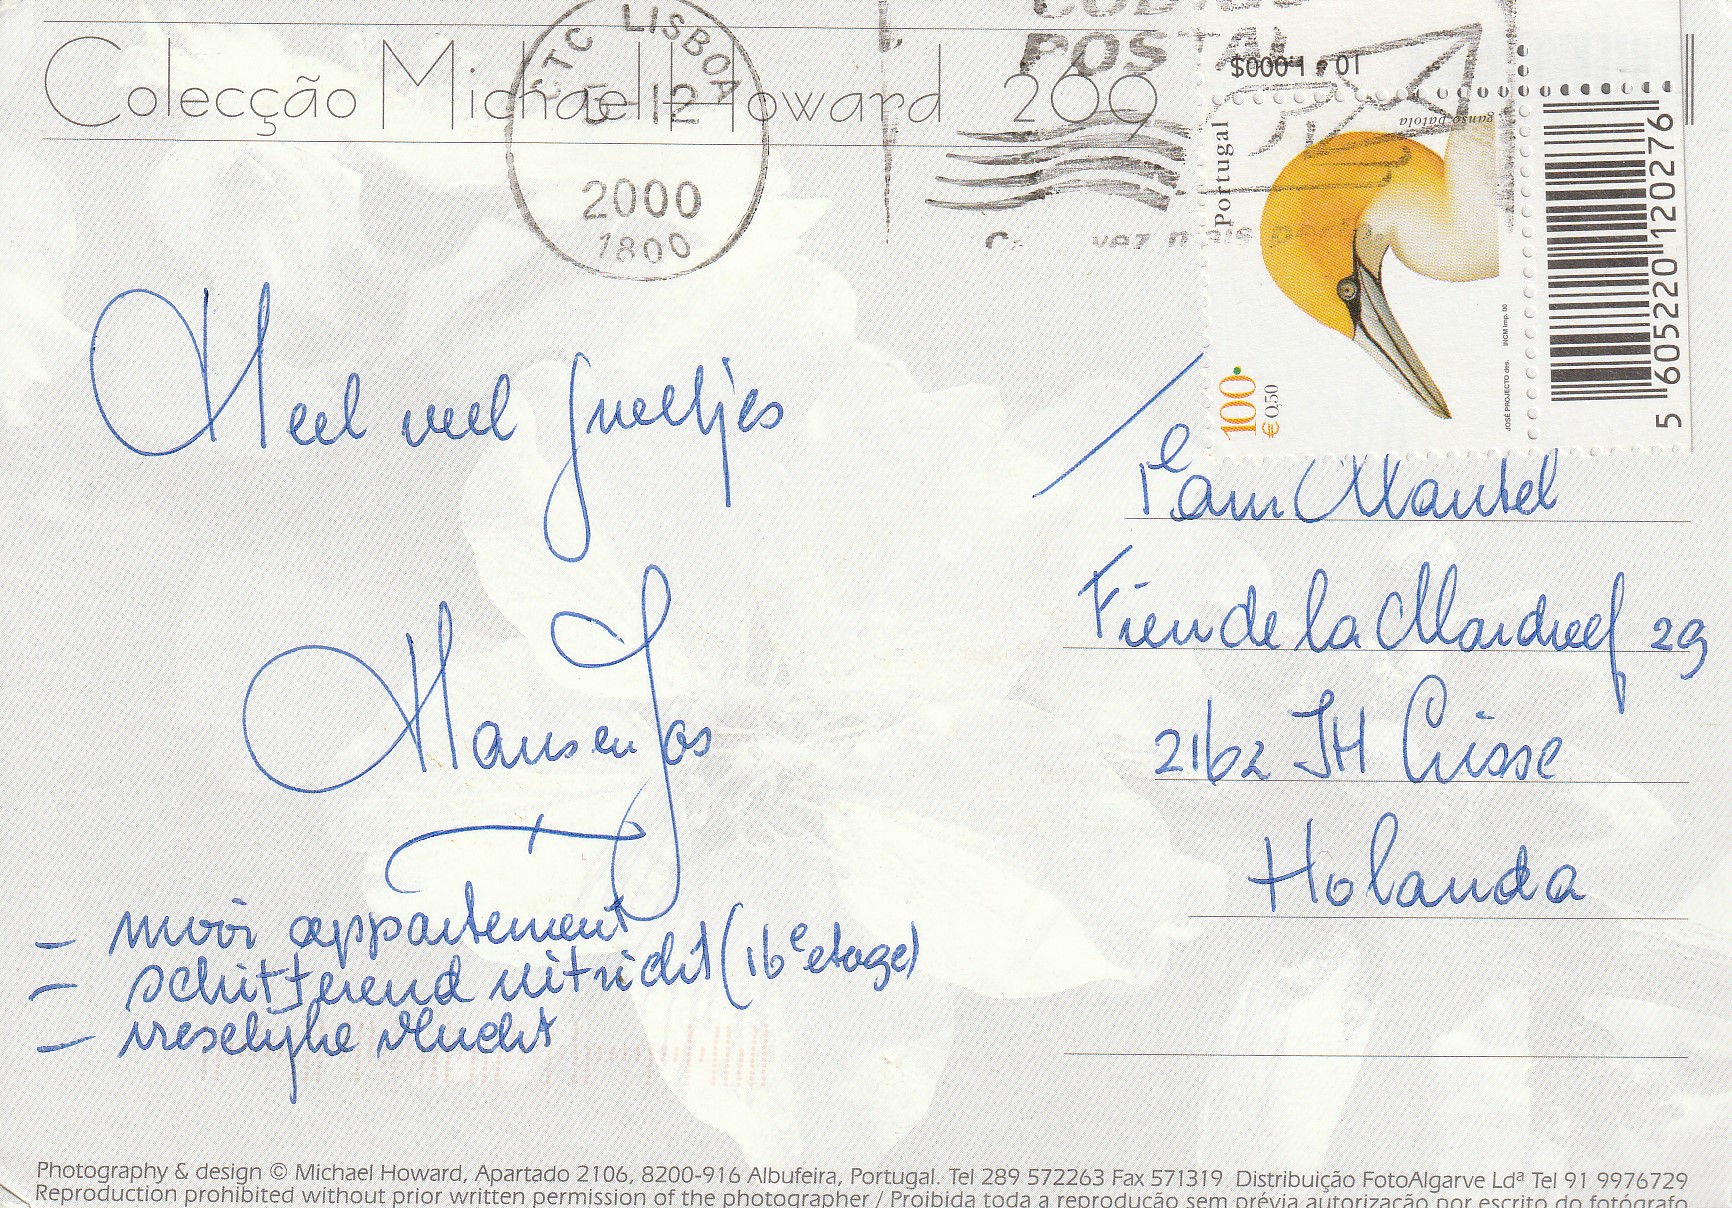 Colecção Michael Howard 269
CTC LISBOA
5 12
2000
1800
POSTAL
vez mais perto.
$0001 01
Portugal
ganso patola
100
€0,50
JOSÉ PROJECTO des. INCM Imp. 00
5 605220 120276
Heel veel groetjes
Hans en Jos
- mooi appartement
- schitterend uitzicht (16e etage)
- vreselijke vlucht
Fam Mantel
Fien de la Mardreef 29
2162 JH Lisse
Holanda
Photography & design © Michael Howard, Apartado 2106, 8200-916 Albufeira, Portugal. Tel 289 572263 Fax 571319 Distribuição FotoAlgarve Ldª Tel 91 9976729
Reproduction prohibited without prior written permission of the photographer / Proibida toda a reprodução sem prévia autorização por escrito do fotógrafo